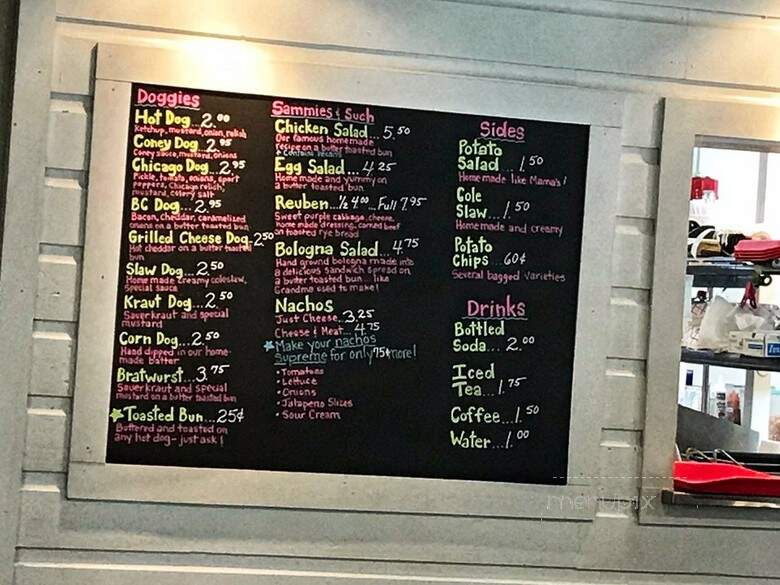 Doggies
Hot Dog...2.00
Ketchup, mustard, onion, relish
Coney Dog...2.95
Coney sauce, mustard, onions
Chicago Dog...2.95
Pickle, tomato, onions, sport
peppers, Chicago relish,
mustard, celery salt
BC Dog...2.95
Bacon, cheddar, caramelized
onions on a butter toasted bun
Grilled Cheese Dog...2.50
Hot cheddar on a butter toasted
bun
Slaw Dog...2.50
Home made creamy coleslaw,
special sauce
Kraut Dog...2.50
Sauerkraut and special
mustard
Corn Dog...2.50
Hand dipped in our home-
made batter
Bratwurst...3.75
Sauerkraut and special
mustard on a butter toasted bun
Toasted Bun...25¢
Buttered and toasted on
any hot dog - just ask!
Sammies & Such
Chicken Salad...5.50
Our famous homemade
recipe on a butter toasted bun
* contains pecans
Egg Salad...4.25
Home made and yummy on
a butter toasted bun
Reuben...½ 4.00...Full 7.95
Sweet purple cabbage, cheese,
home made dressing, corned beef
on toasted rye bread
Bologna Salad...4.75
Hand ground bologna made into
a delicious sandwich spread on
a butter toasted bun... like
Grandma used to make!
Nachos
Just Cheese...3.25
Cheese & Meat...4.75
Make your nachos
Supreme for only 75¢ more!
• Tomatoes
• Lettuce
• Onions
• Jalapeno Slices
• Sour Cream
Sides
Potato
Salad...1.50
Home made like Mama's!
Cole
Slaw...1.50
Home made and creamy
Potato
Chips...60¢
Several bagged varieties
Drinks
Bottled
Soda...2.00
Iced
Tea...1.75
Coffee...1.50
Water...1.00
menupix